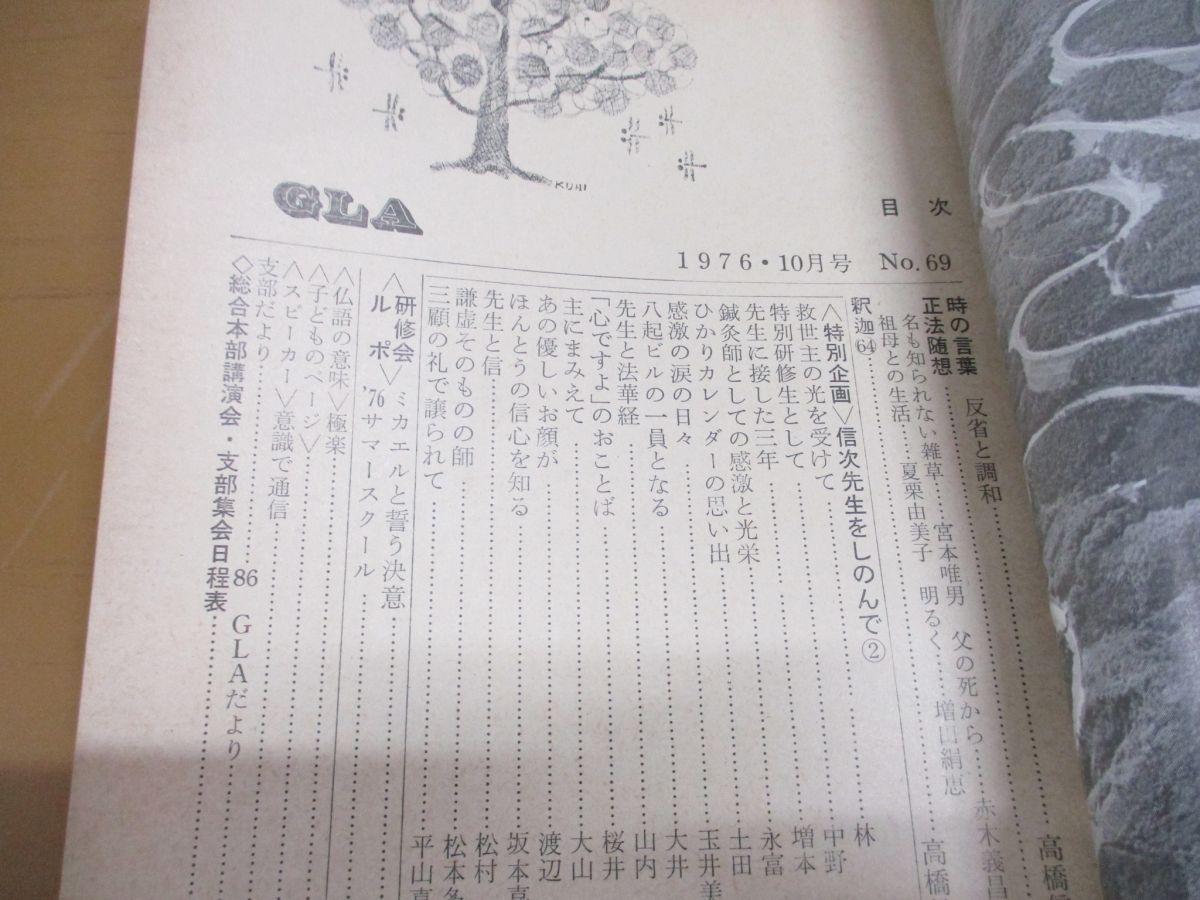 GLA
目次
1976・10月号 No.69
時の言葉 反省と調和 高橋
正法随想
名も知られない雑草 宮本唯男 父の死から 赤木義昌
祖母との生活 夏栗由美子 明るく 増田絹恵
釈迦64 高橋
<特別企画>信次先生をしのんで②
救世主の光を受けて 林
特別研修生として 中野
先生に接した三年 増本
鍼灸師としての感激と光栄 永富
ひかりカレンダーの思い出 土田
感激の涙の日々 玉井美
八起ビルの一員となる 大井
先生と法華経 山内
「心ですよ」のおことば 桜井
主にまみえて 大山
あの優しいお顔が 渡辺
ほんとうの信心を知る 坂本喜
先生と信 松村
謙虚そのものの師 松本
三顧の礼で譲られて 平山
<研修会>ミカエルと誓う決意
ルポ '76サマースクール
<仏語の意味>極楽
<子どものページ>
<スピーカー>意識で通信
支部だより 86 GLAだより
◇総合本部講演会・支部集会日程表